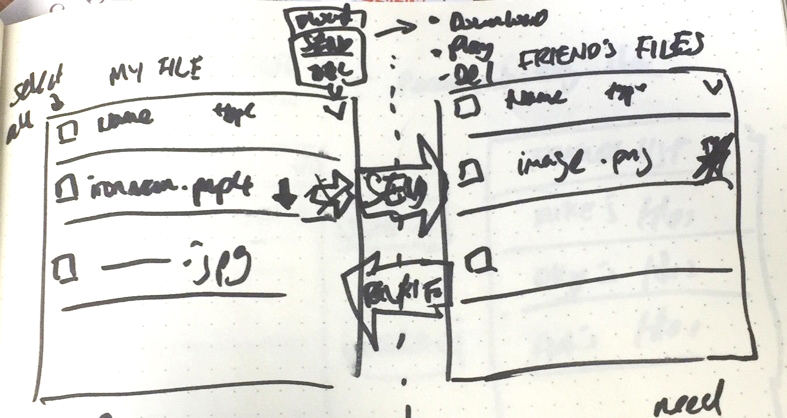 SEND
DEL
• Download
• Play
- Del
select
all
MY FILE
Name type
ironman.mp4
.jpg
SEND
FRIEND'S FILES
Name type
image.png
need